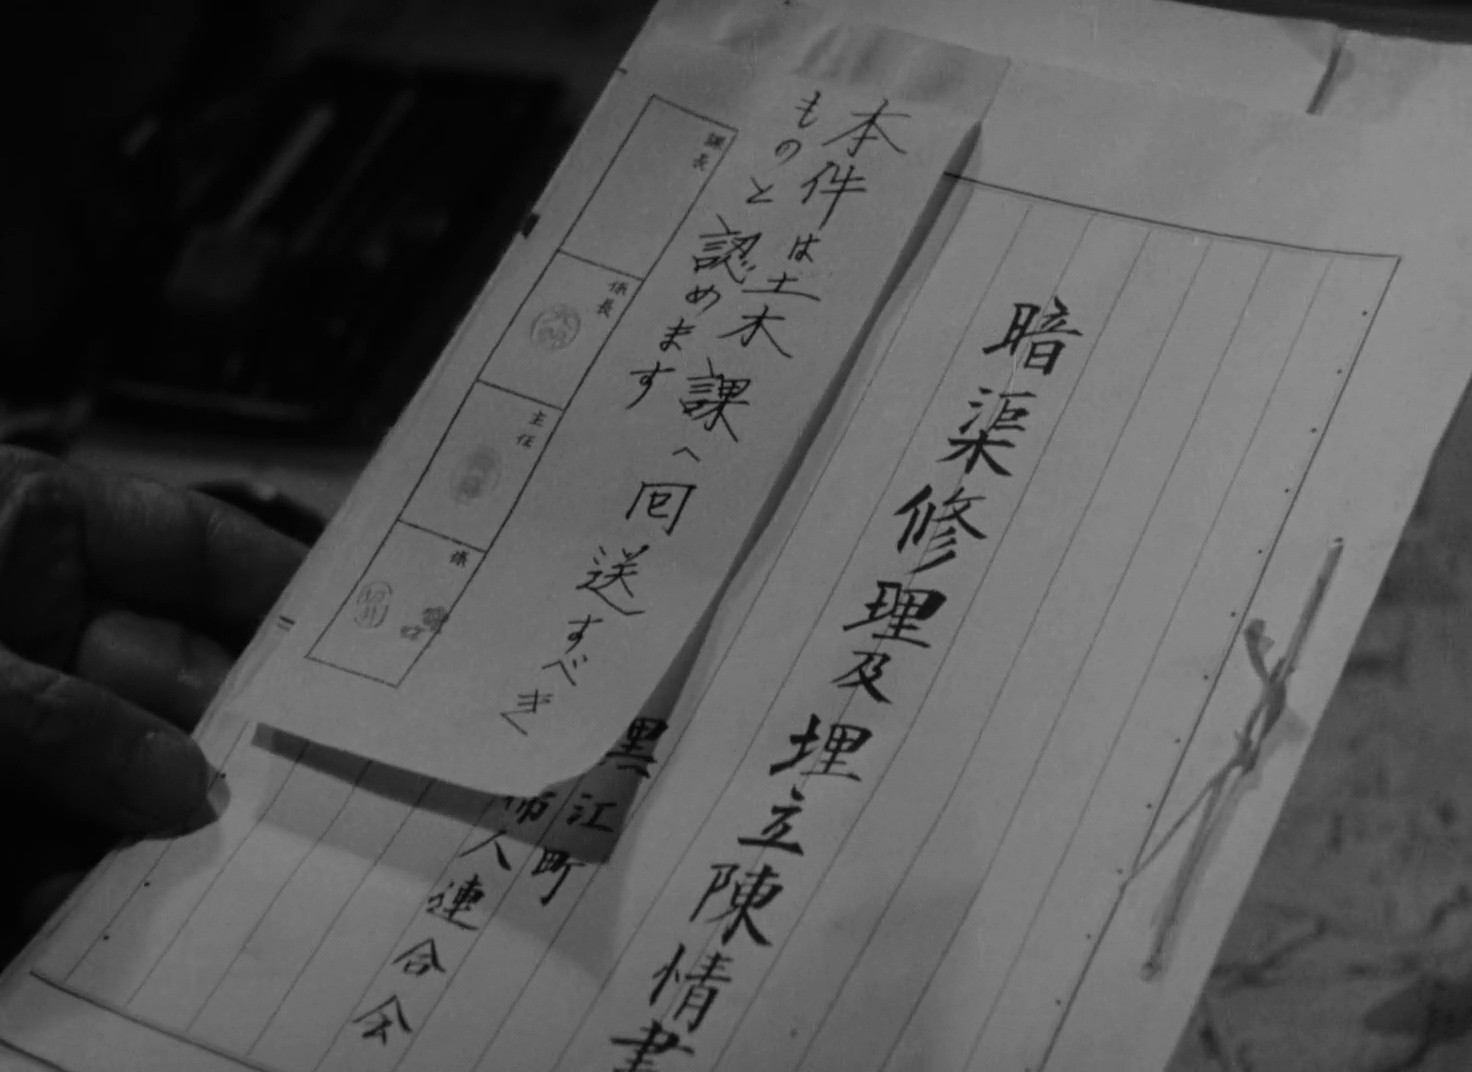 暗渠修理及埋立陳情書
黒江町
婦人連合会
本件は土木課へ回送すべき
ものと認めます
課長
係長
主任
係